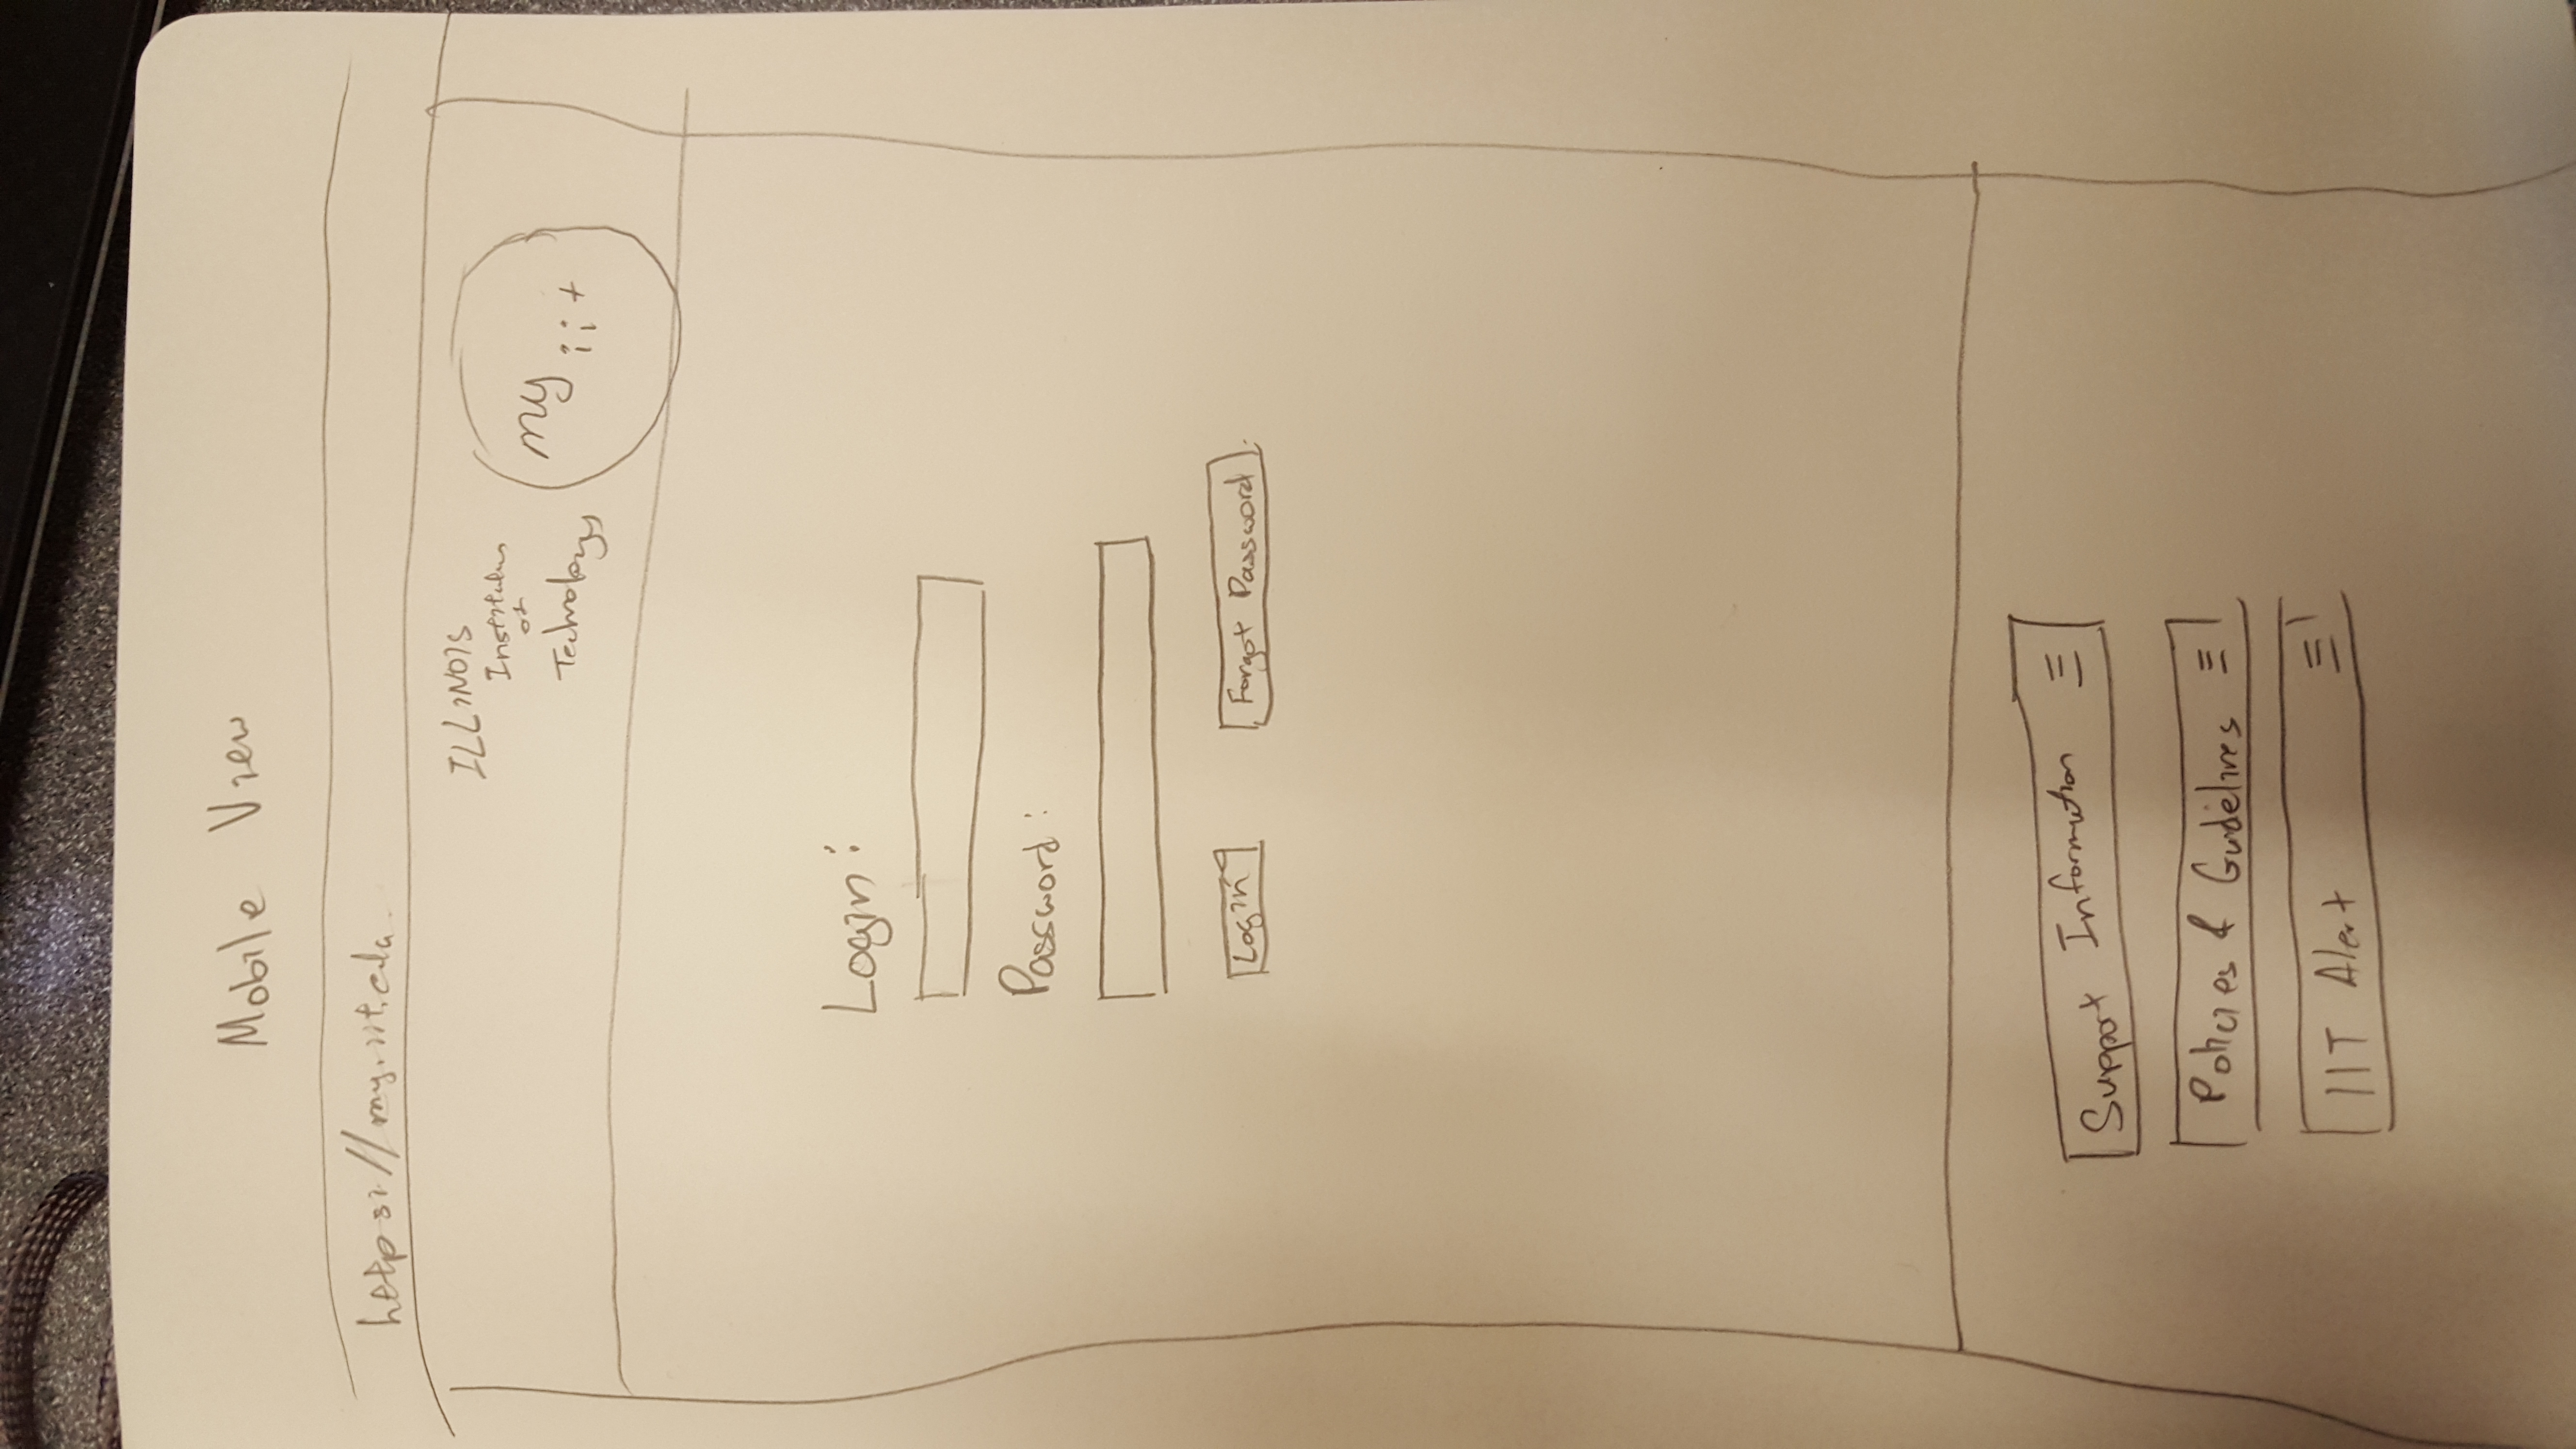 Mobile View
https://my.iit.edu
ILLINOIS
Institutes
of
Technology
my
iit
Login:
Password:
Login
Forgot Password
Support Information
Policies & Guidelines
IIT Alert